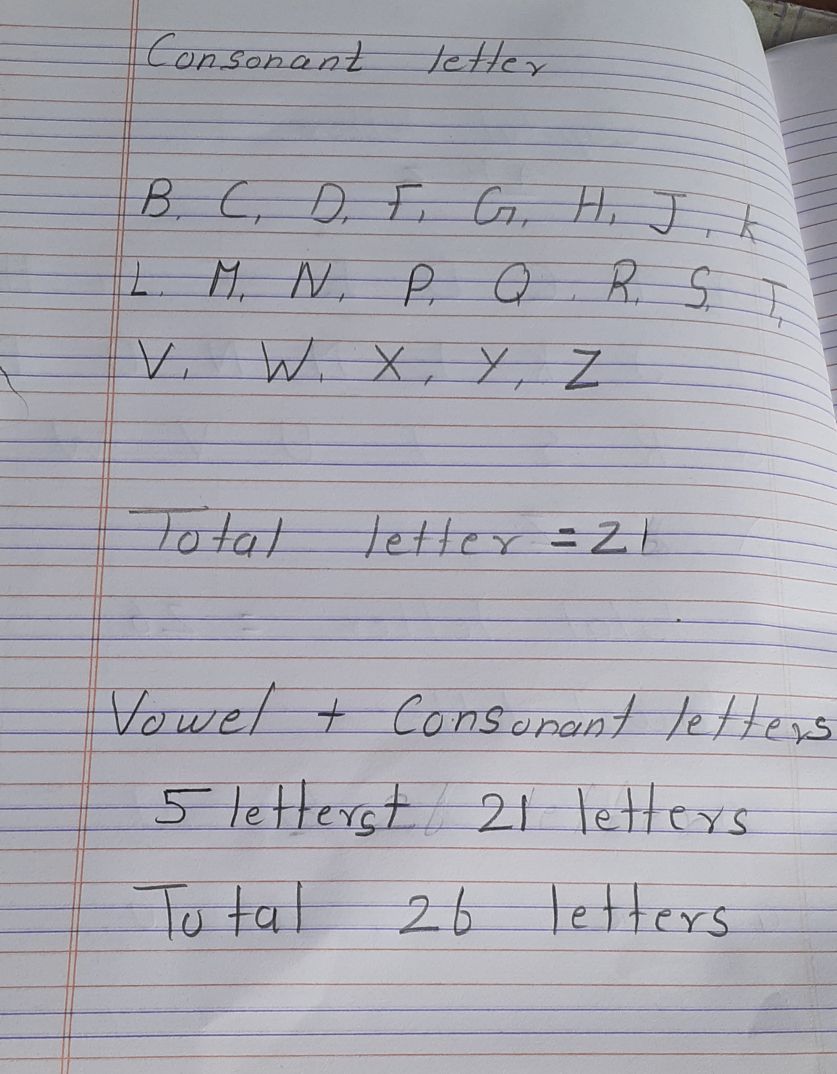 Consonant letter
B, C, D, F, G, H, J, k
L, M, N, P, Q, R, S, T,
V, W, X, Y, Z
Total letter = 21
Vowel + Consonant letters
5 letters+ 21 letters
Total 26 letters